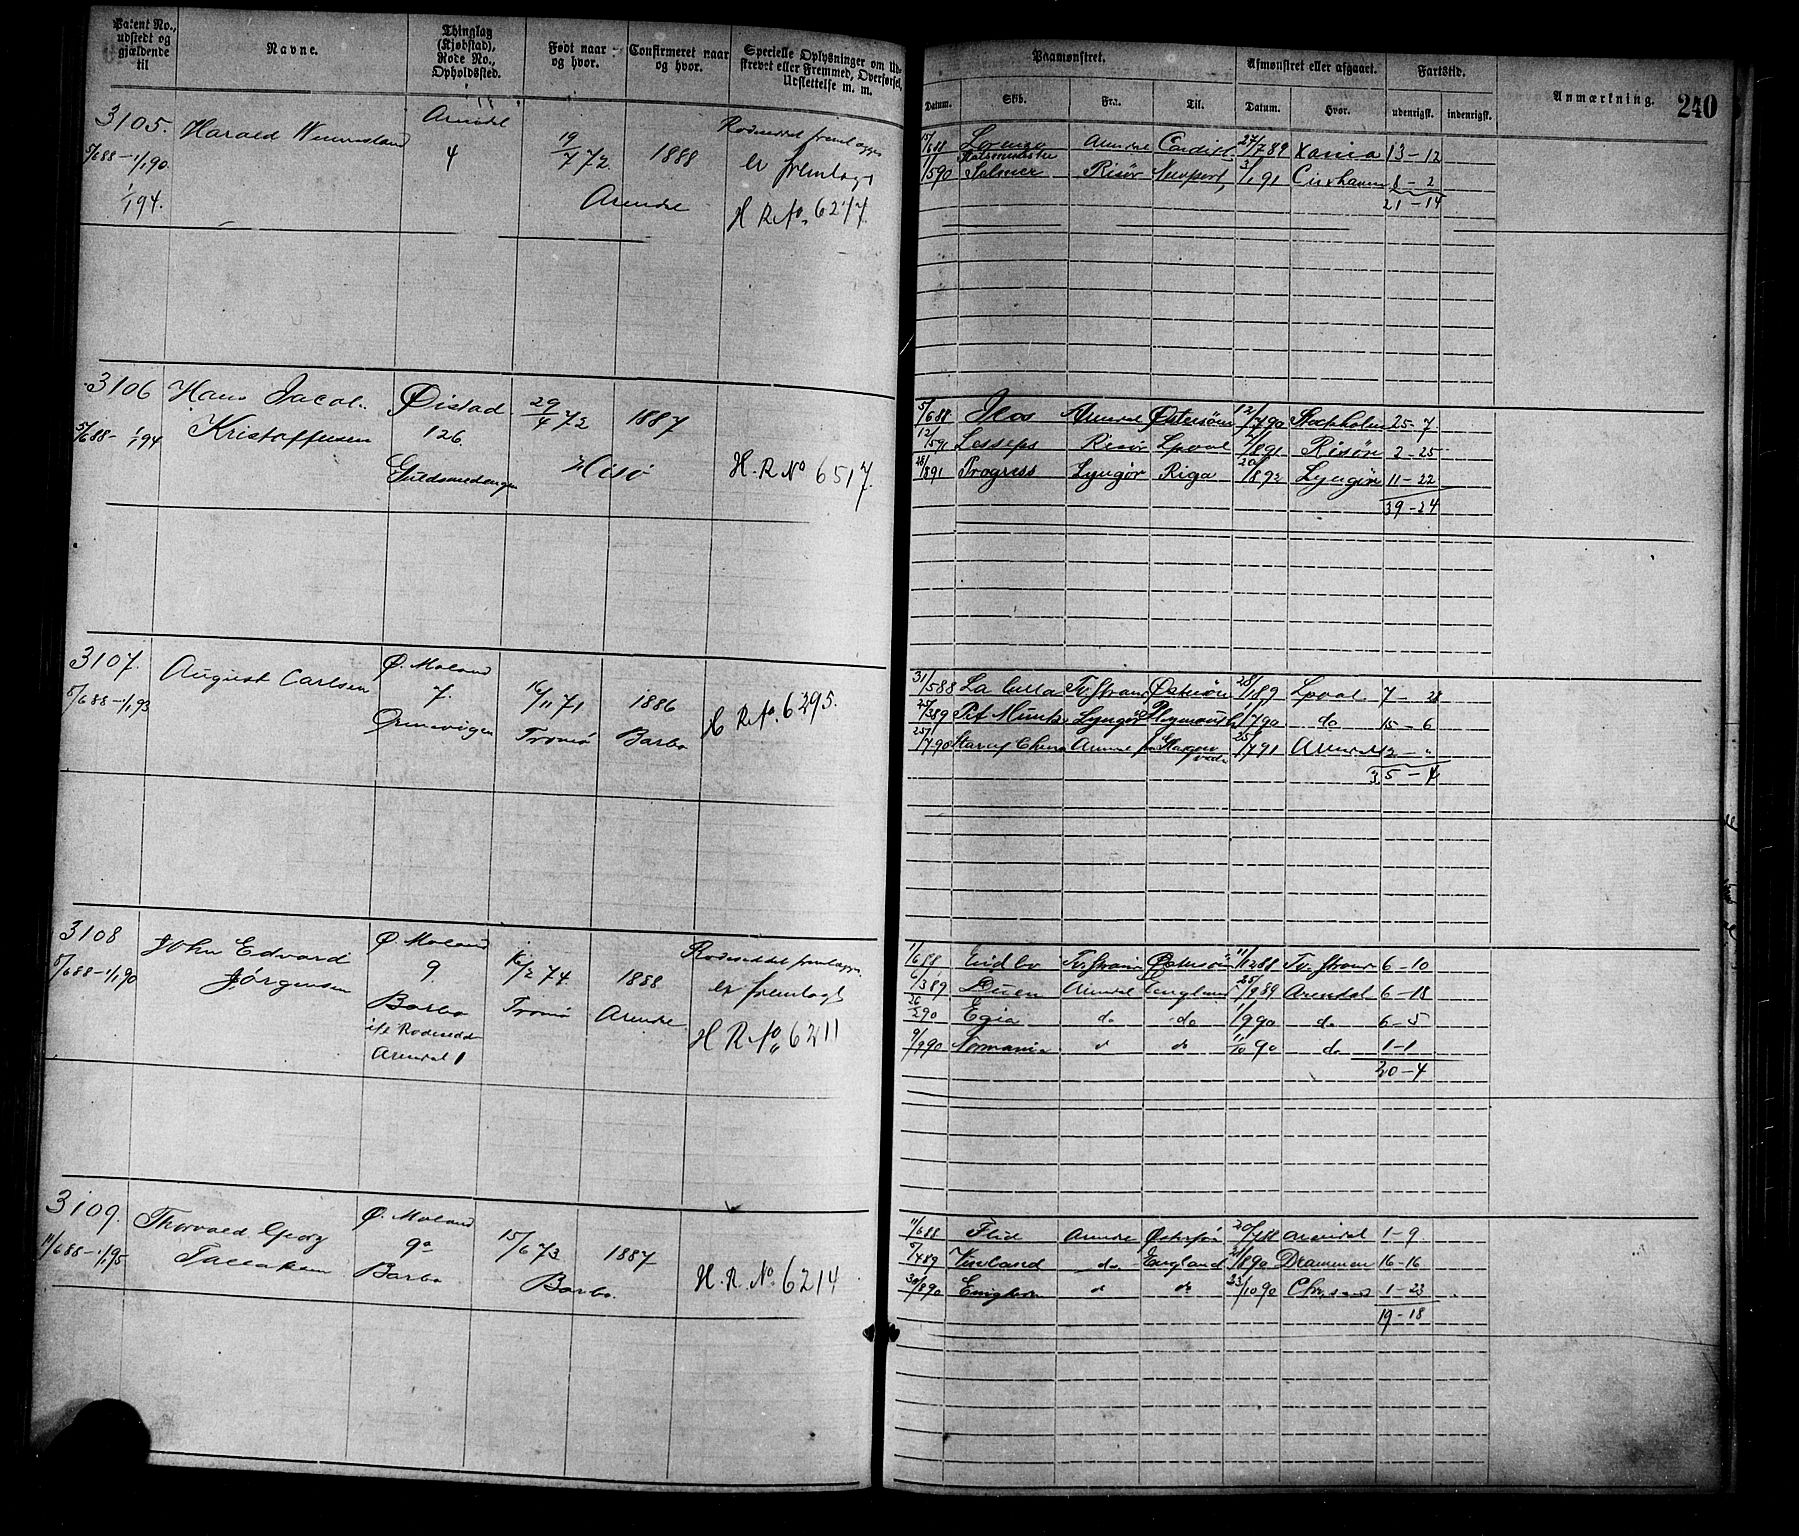 Patent No., udstedt og gjældende til
Navne.
Thinglag (Kjøbstad), Rode No., Opholdssted.
Født naar og hvor.
Confirmeret naar og hvor.
Specielle Oplysninger om Udskrevet eller Fremmed, Overførsel, Udslettelse m. m.
Paamønstret.
Datum. Skib. Fra. Til.
Afmønstret eller afgaaet.
Datum. Hvor.
Fartstid.
udenrigsk. indenrigsk.
Anmærkning.
240
3105.
5/6 88 – 1/1 90
1/1 94.
Harald
Arendal
4
19/7 72
Arendal
1888
Rodeseddel fremlægges
er fremlagt
H. R. No. 6277.
15/6 88 Lorenzo Arendal Cardiff 27/7 89 Xania 13–12
Risør Newport 91 Cuxhaven 8–2
21–14
3106
5/6 88 – 1/1 94
Hans Jacob
Kristoffersen
Øistad
126
Guldsmedengen
29/4 72
Hisø
1887
H. R. No 6517.
5/6 88 Arendal Østersøen 12/7 90 Stockholm 25–7
12/5 91 Lesseps Risør 8 91 Risør 2–25
28/8 91 Progress Lyngør Riga 20/8 92 Lyngør 11–22
39–24
3107.
5/6 88 – 1/1 93
August Carlsen
Ø. Moland
7.
16/11 71
Tromø
1886
Barbo
H R. No. 6295.
31/5 88 La Østersøen 28/1 89 7–28
25/3 89 Lyngør Plymouth 7 90 do 15–6
25/7 90 Arendal 25/7 91 Arendal 12–"
35–4
3108
5/6 88 – 1/1 90
John Edvard
Jørgensen
Ø Moland
9
Barbo
Arendal 1
16/2 74
Tromø
1888
Arendal
Rodeseddel fremlægges
er fremlagt
H R. No. 6211
11/6 88 Østersøen 11/12 88 6–10
6/3 89 Arendal England 9 89 Arendal 6–18
26/2 90 Egia do do 1/9 90 do 6–5
9/9 90 Normania d do 11/10 90 do 1–1
20–4
3109.
11/6 88 – 1/1 95
Thorvald Georg
Tallaksen
Ø. Moland
9a
Barbo
15/6 73
Barbo.
1887
H. R. No. 6214
11/6 88 Flid Arendal 20/7 88 Arendal 1–9
5/4 89 Vinland do England 8 90 Drammen 16–16
30/8 90 d do 23/10 90 1–23
19–18